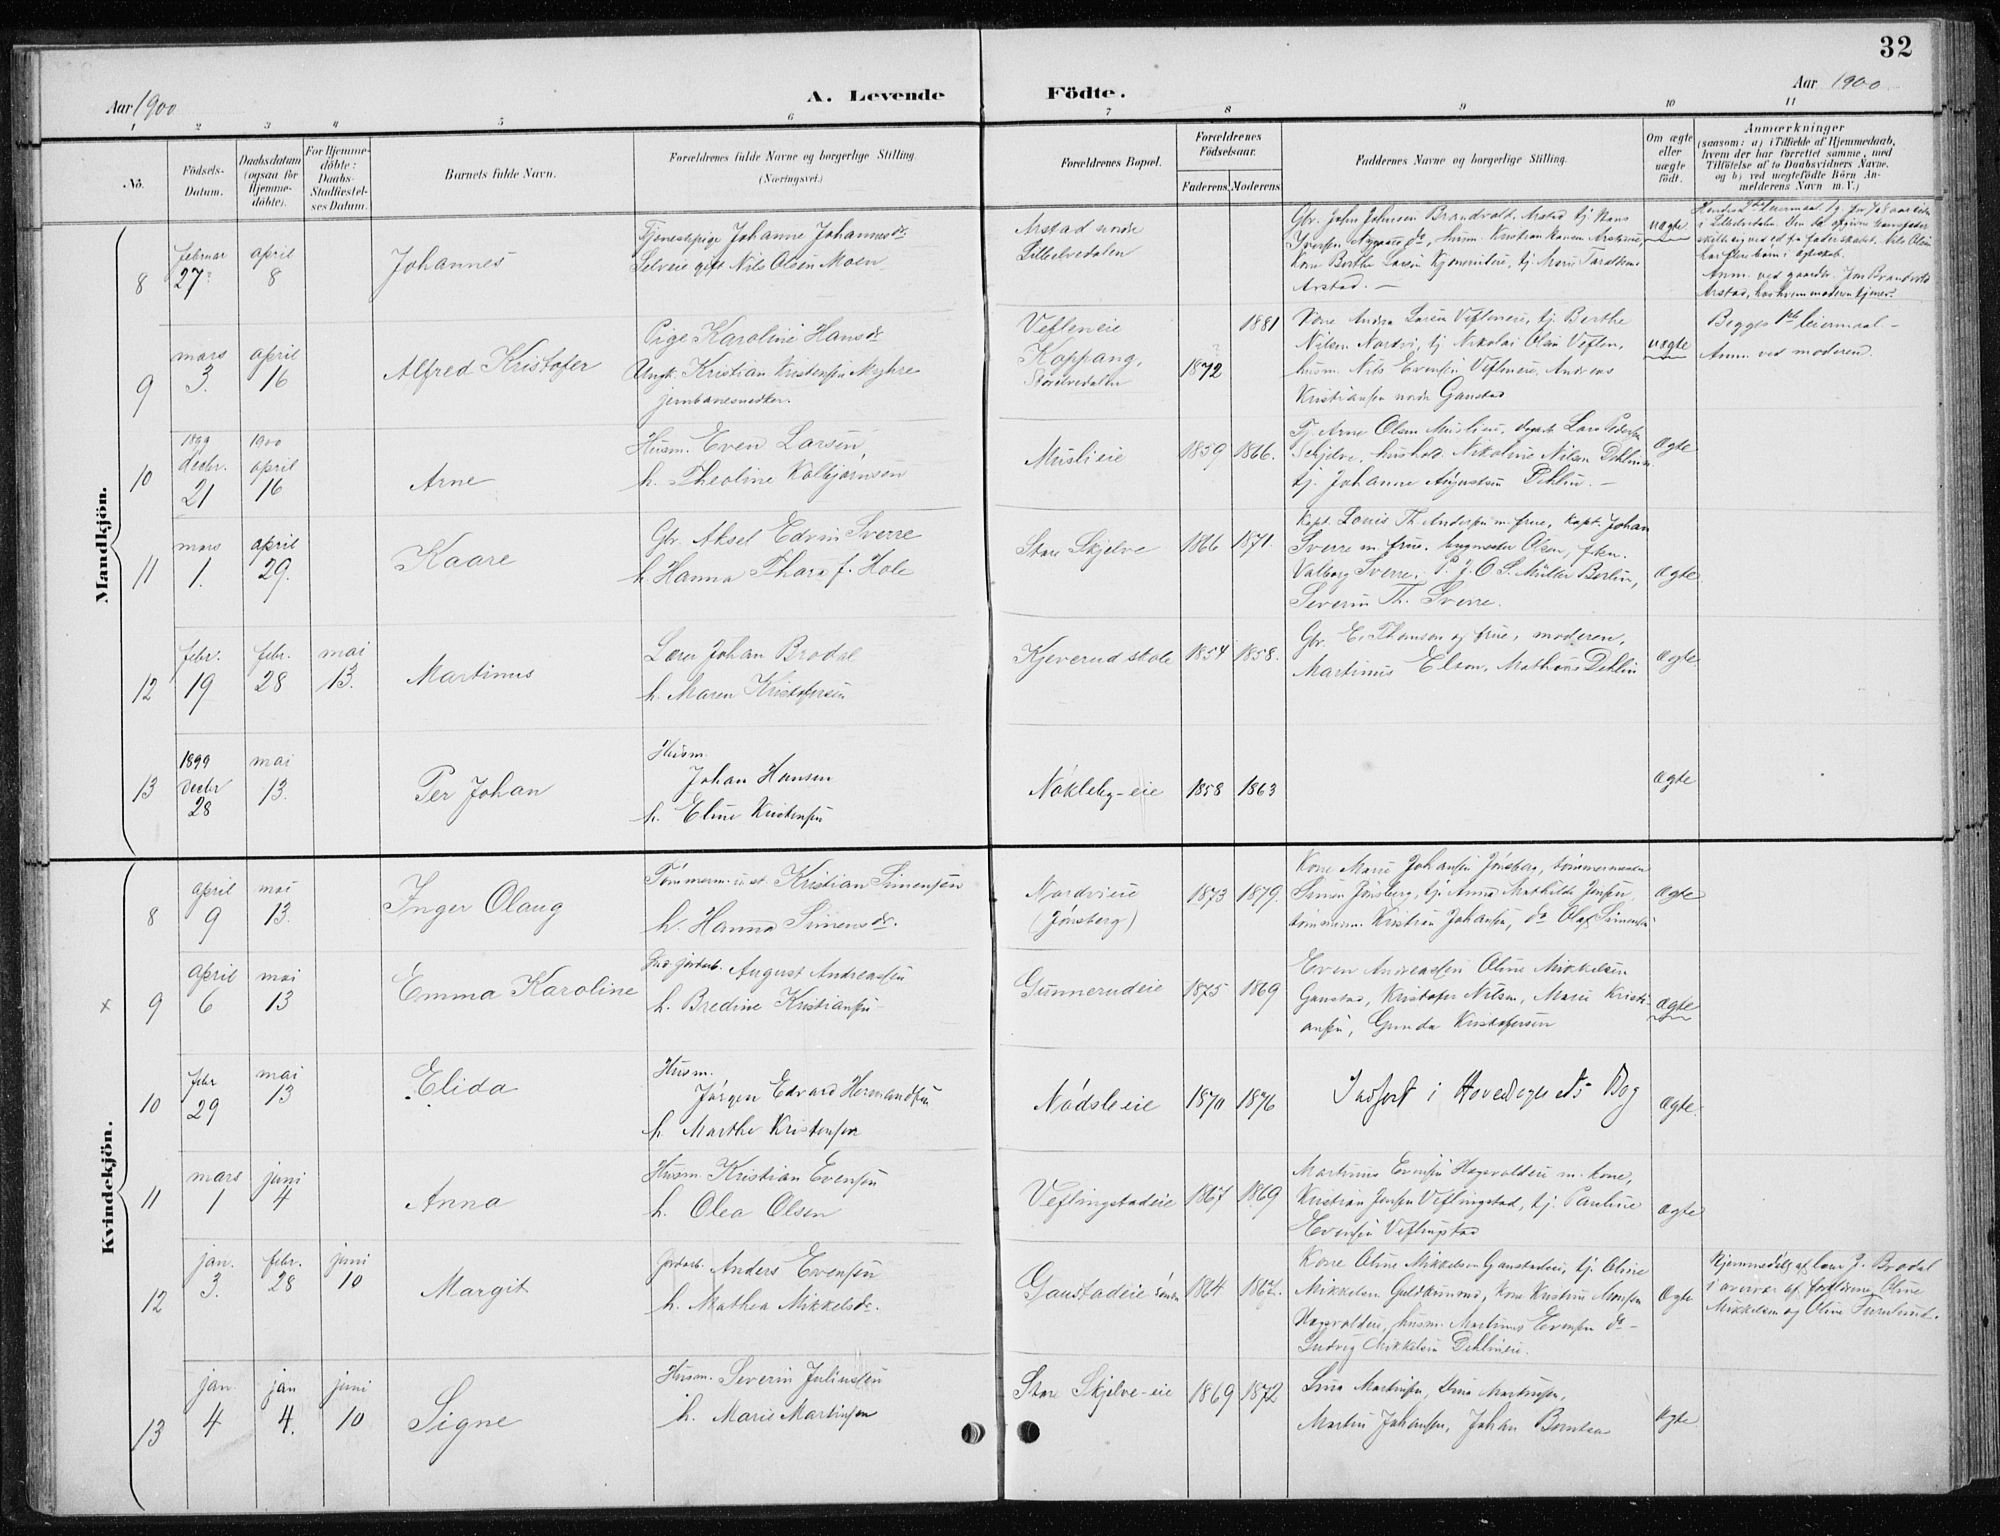 32
Aar 1900
A. Levende
Födte.
Aar 1900
1 2 3 4 5 6 7 8 9 10 11
No.
Födsels-
Datum.
Daabsdatum
(ogsaa for
Hjemme-
döbte).
For Hjemme-
döbte:
Daabs-
Stadfæstel-
ses Datum.
Barnets fulde Navn.
Forældrenes fulde Navne og borgerlige Stilling
(Næringsvei.)
Forældrenes Bopæl.
Forældrenes
Födselsaar.
Faderens.
Moderens.
Faddernes Navne og borgerlige Stilling.
Om ægte
eller
uægte
födt.
Anmærkninger
(saasom: a) i Tilfælde af Hjemmedaab,
hvem der har forrettet samme, med
Tilföielse af to Daabsvidners Navne,
og b) ved uægtefödte Börn An-
melderens Navn m. V.)
Mandkjön.
8
februar
27
april
8
Johannes
Tjenestepige Johanne Johannesdr
Selveier gift Nils Olsen Moen
Arstad nordre
Lilleelvedalen
Gbr. John Johnsen Brandvold, Arstad, tj. Hans
Iversen Nygaard do, husm. Kristian Hansen Arstadeie
Kone Berthe Larsen
Arstad. —
uægte
Nils Olsen
har flere barn i ægteskab.
Anm. ved gaardbr. Jon Brandvold
Arstad, hos hvem moderen tjener.
9
mars
3.
april
16
Alfred Kristofer
Pige Karoline Hansdr
Ungk. Kristian Kristensen Myhre
jernbanesnedker.
Vefleneie
Koppang,
Storelvedalen
1872
1881
Kone Andrea Larsen Vefleneie, tj. Berthe
Nilsen Nordvi, tj. Nikolai Olsen Veflen,
husm. Nils Evensen Vefleneie, Andreas
Kristiansen nordre Ganstad
uægte
Begges 1ste leiermaal —
Anm. ved moderen.
10
1899
decbr.
21
1900
april
16
Arne
Husm. Even Larsen,
h. Theoline Kolbjørnsen
Muslieie
1859
1866.
Tj. Arne Olsen Muslieie, Lars Pedersen
Skjelve, hushold. Nikoline Nilsen Dehlin
tj. Johanne Augustsen Dehlin. —
ægte
11
mars
1.
april
29.
Kaare
Gbr. Aksel Edvin Sverre
h. Hanna Thora f. Hole
Store Skjelve
1866
1871.
Kapt. Louis Th. Andersen m. frue, Kapt. Johan
Sverre m. frue. Olsen, frkn.
Valborg Sverre, P. J. O. S. Müller Berlin,
Severin Th. Sverre.
ægte
12
febr.
19
febr.
28
mai
13.
Martinus
Lærer Johan Brodal
h. Maren Kristofersen
Kjeverud skole
1854
1858.
Gbr. E. Thomson og frue, moderen,
Martinus Elson, Mathias Dehlin
ægte
13
1899
decbr
28
mai
13.
Per Johan
Husm.
Johan Hansen
h. Eline Kristensen
Nøkleby-eie
1858
1863
ægte
Kvindekjön.
8
april
9
mai
13.
Inger Olaug
Tømmerm. Kristian Simensen
h. Hanna Simensdr.
Nordvieie
(Jønsberg)
1873
1879.
Kone Marie Johansen Jønsberg, tømmermand
Simen Jønsberg, tj. Anna Mathilde Jensen,
tømmerm. Kristian Johansen, do Olaf Simensen
ægte
x
9
april
6
mai
13
Emma Karoline
Ind. jordarb. August Andreassen
h. Bredine Kristiansen
Gunnerudeie
1875
1869
Even Andreassen Oline Mikkelsen
Ganstad, Kristofer Nilsen, Marie Kristi-
ansen, Gunda Kristofersen
ægte
10
febr
29
mai
13
Elida
Husm.
Jørgen Edvard Hermandsen
h. Marthe Kristensen
Nødsleeie
1870
1876
Indført i Hovedsognets Bog
ægte.
11
mars
1
juni
4
Anna
Husm. Kristian Evensen
h. Olea Olsen
Veflingstadeie
1867
1869
Martinus Evensen Hagevoldeie m. kone,
Kristian Jensen Veflingstad, tj. Pauline
Evensen Veflingstad
ægte
12
jan.
3.
febr.
28
juni
10
Margit
Jordarb. Anders Evensen
h. Mathea Mikkelsdr.
Ganstadeie søndre
1864
1867.
Kone Oline Mikkelsen Ganstadeie, tj. Oline
Mikkelsen Guldkrund, kone Kristine Monsen
Hagevoldeie, husm. Martinus Evensen do —
Ludvig Mikkelsen Dehlineie.
ægte
Hjemmedøbt af lærer J. Brodal
i overvær af forældrene, Oline
Mikkelsen og Oline Furulund.
13
jan.
4
jan
4.
juni
10
Signe
Husm. Severin Juliussen
h. Marie Martinsen
Store Skjelve-eie
1869
1872
Lina Martinsen, Dina Martinsen,
Martin Johansen, Johan Berntsen
ægte